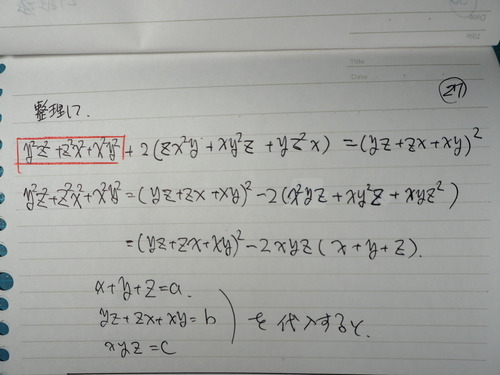 Title
Date
㉗
整理して.
y²z²+z²x²+x²y² + 2(zx²y + xy²z + yz²x) = (yz+zx+xy)²
y²z²+z²x²+x²y² = (yz+zx+xy)² - 2(x²yz + xy²z + xyz²)
= (yz+zx+xy)² - 2xyz(x+y+z).
x+y+z=a.
yz+zx+xy=b を代入すると.
xyz=c